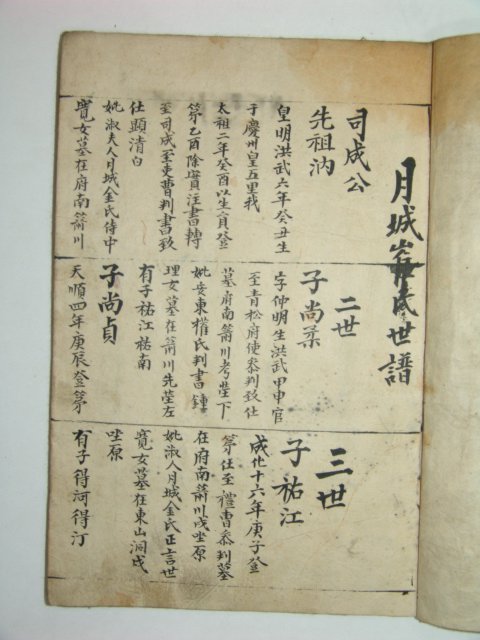 月城崔氏世譜
司成公
先祖汭
皇明洪武六年癸丑生
于慶州皇五里我
太祖二年癸酉以生員登
第乙酉除實注書轉
至司成至吏曹判書致
仕顯清白
妣淑夫人月城金氏侍中
覽女墓在府南箭川
二世
子尚柔
字仲明生洪武甲申官
至青松府使叅判致仕
墓府南箭川考塋下
妣安東權氏判書鍾
理女墓在箭川先塋左
有子祐江祐南
子尚貞
天順四年庚辰登第
三世
子祐江
成化十六年庚子登
第仕至禮曹叅判墓
在府南箭川戌坐原
妣淑人月城金氏正言世
寬女墓在東山洞戌
坐原
有子得河得汀